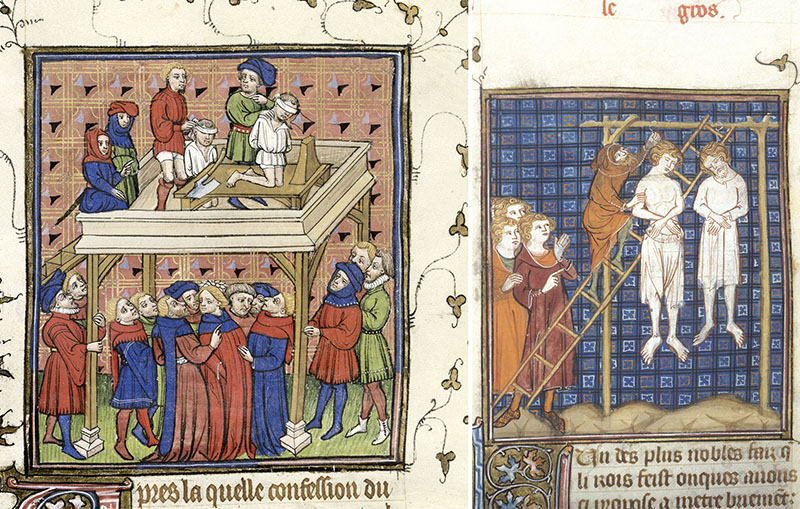 pres la quelle confession du
le gros.
Un des plus nobles faiz q
li rois feist onques auons
a metre briement: